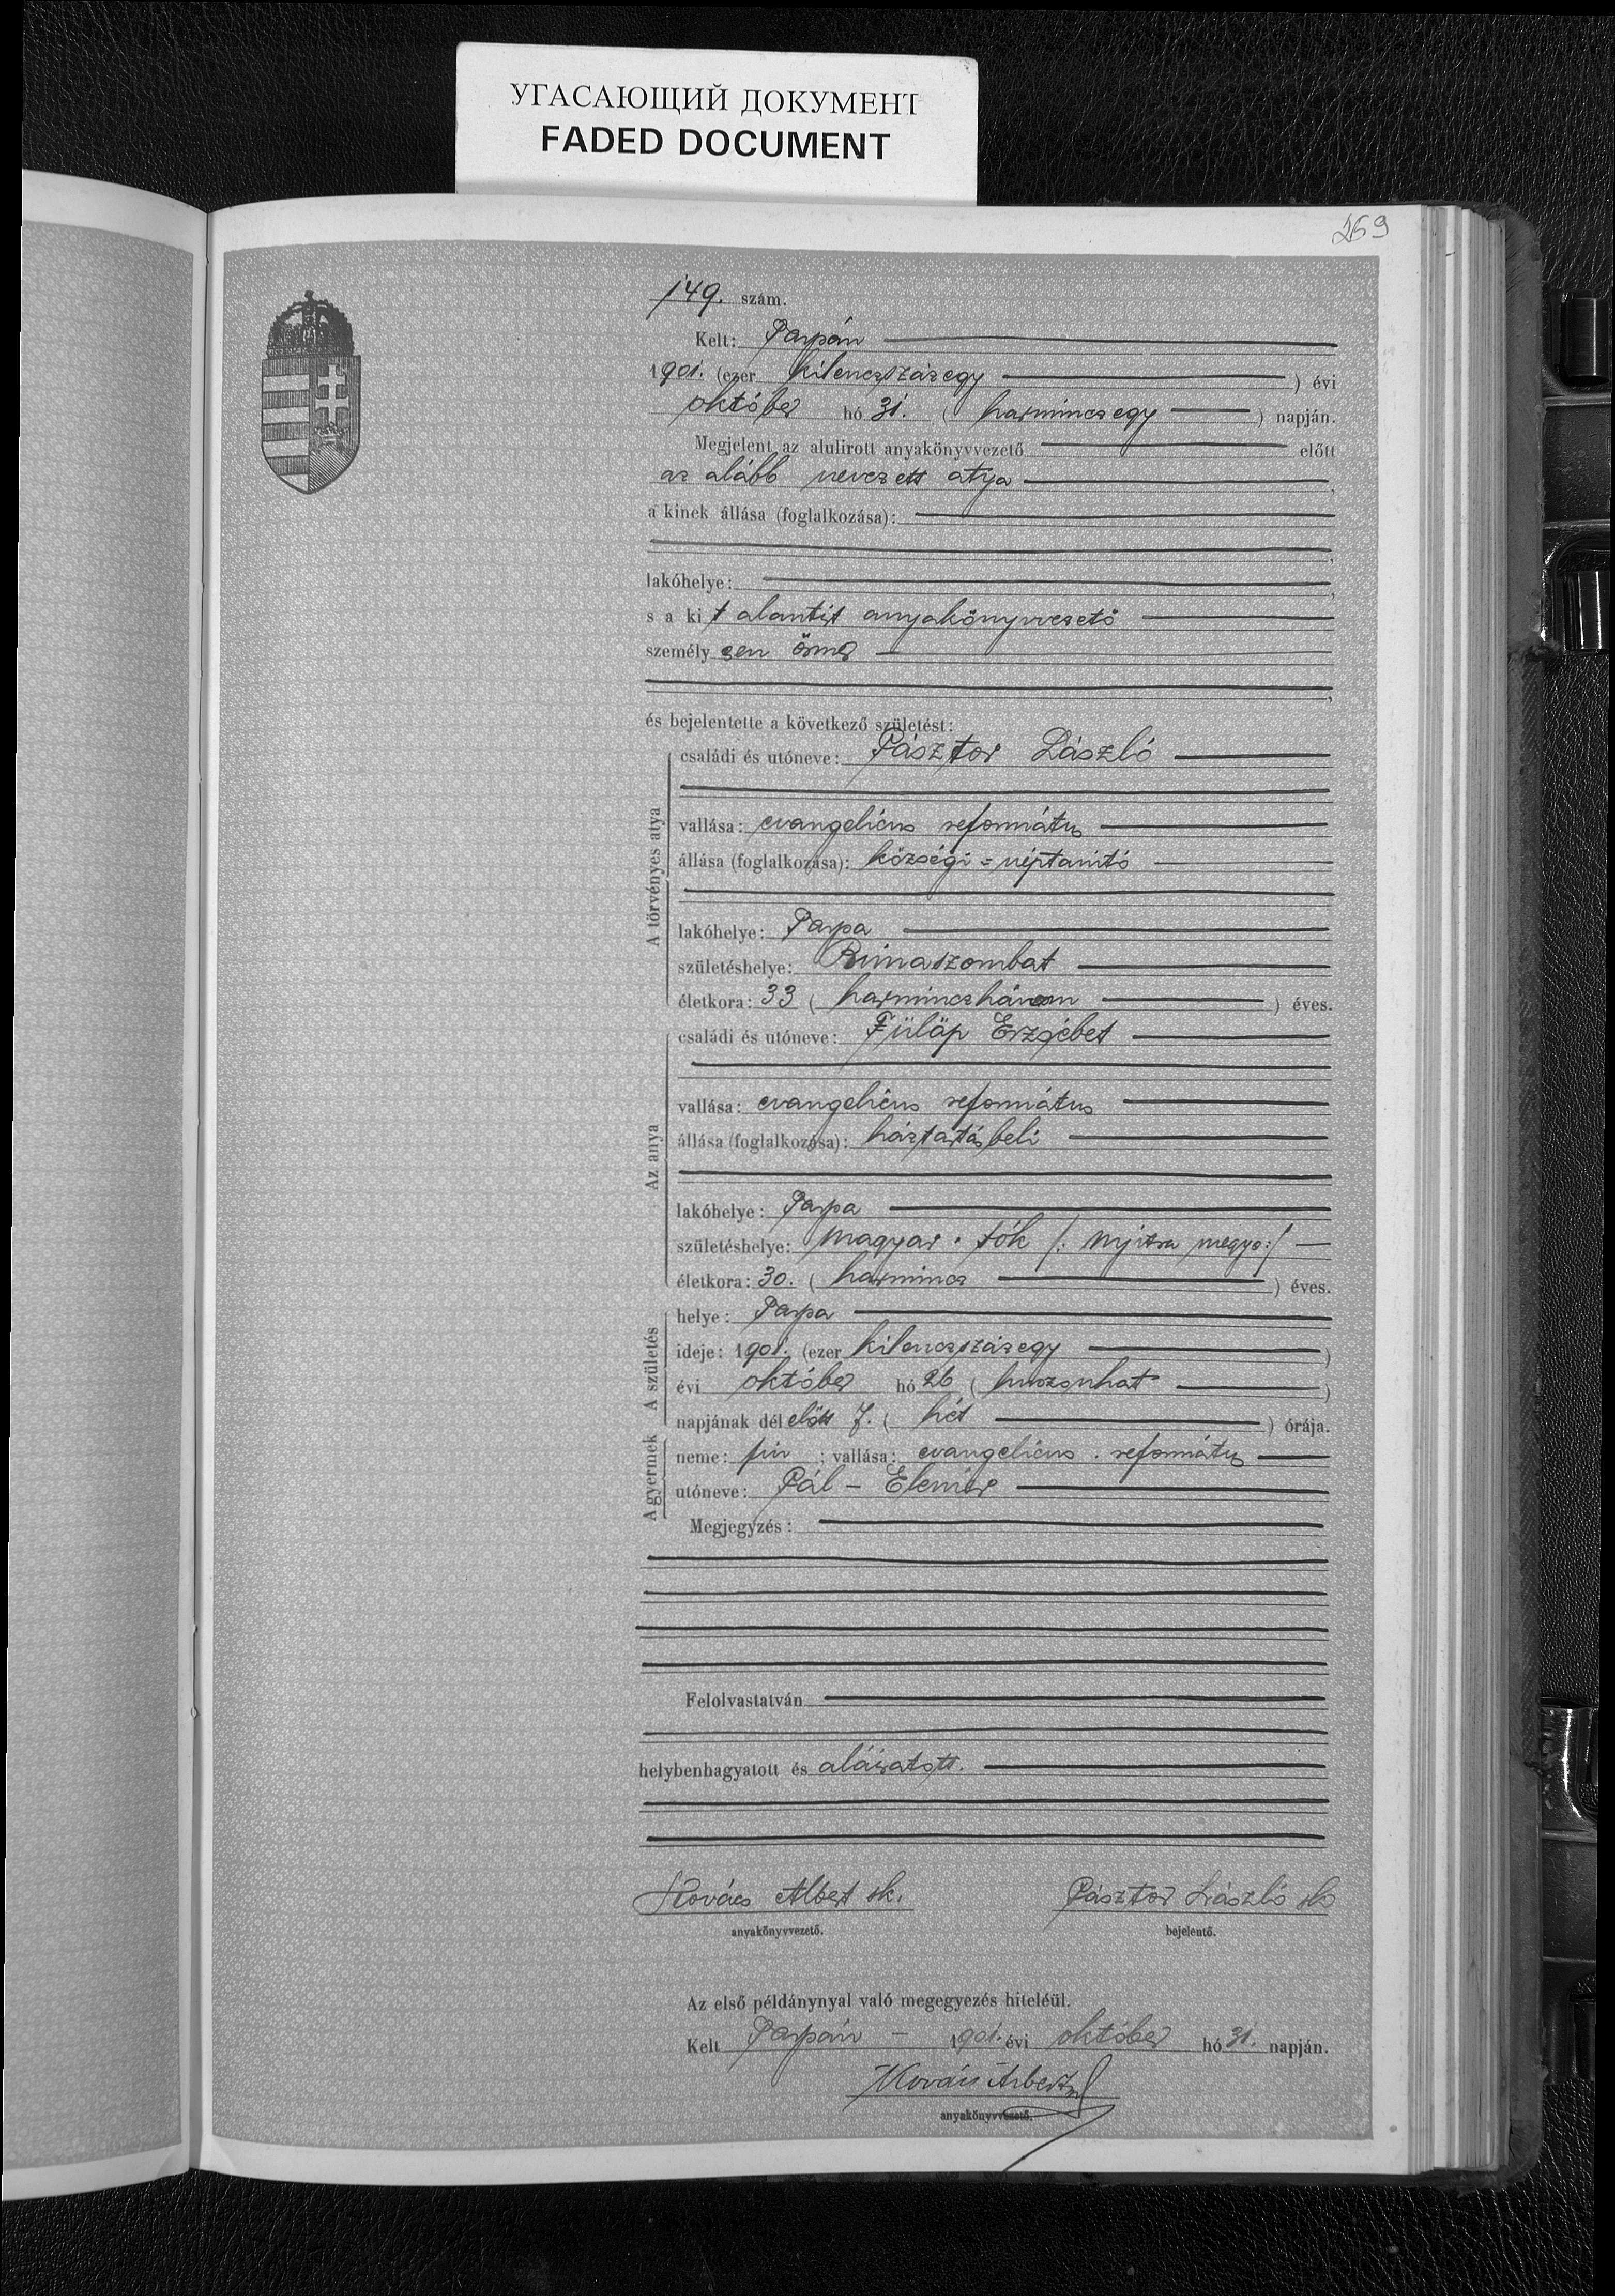 УГАСАЮЩИЙ ДОКУМЕНТ
FADED DOCUMENT
269
149. szám.
Kelt: Tarpán
1901. (ezer kilenczszázegy ) évi
október hó 31. ( harminczegy ) napján.
Megjelent az alulirott anyakönyvvezető előtt
az alább nevezett atya ,
a kinek állása (foglalkozása):
,
lakóhelye: ,
s a kit alantirt anyakönyvvezető
személyesen ismer
,
és bejelentette a következő születést:
A törvényes atya
családi és utóneve: Pásztor László
vallása: evangelicus református
állása (foglalkozása): községi = néptanitó
lakóhelye: Tarpa
születéshelye: Rimaszombat
életkora: 33 ( harminczhárom ) éves.
Az anya
családi és utóneve: Fülöp Erzsébet
vallása: evangelicus református
állása (foglalkozása): háztartásbeli
lakóhelye: Tarpa
születéshelye: Magyar
életkora: 30. ( harmincz ) éves.
A születés
helye: Tarpa
ideje: 1901. (ezer kilenczszázegy )
évi október hó 26 ( huszonhat )
napjának dél előtt 7. ( hét ) órája.
A gyermek
neme: fiu ; vallása: evangelicus . református
utóneve: Pál - Elemér
Megjegyzés:
Felolvastatván
helybenhagyatott és aláiratott.
Kovács Albert sk. Pásztor László sk
anyakönyvvezető. bejelentő.
Az első példánynyal való megegyezés hiteléül.
Kelt Tarpán – 1901. évi október hó 31. napján.
Kovács Albert
anyakönyvvezető.